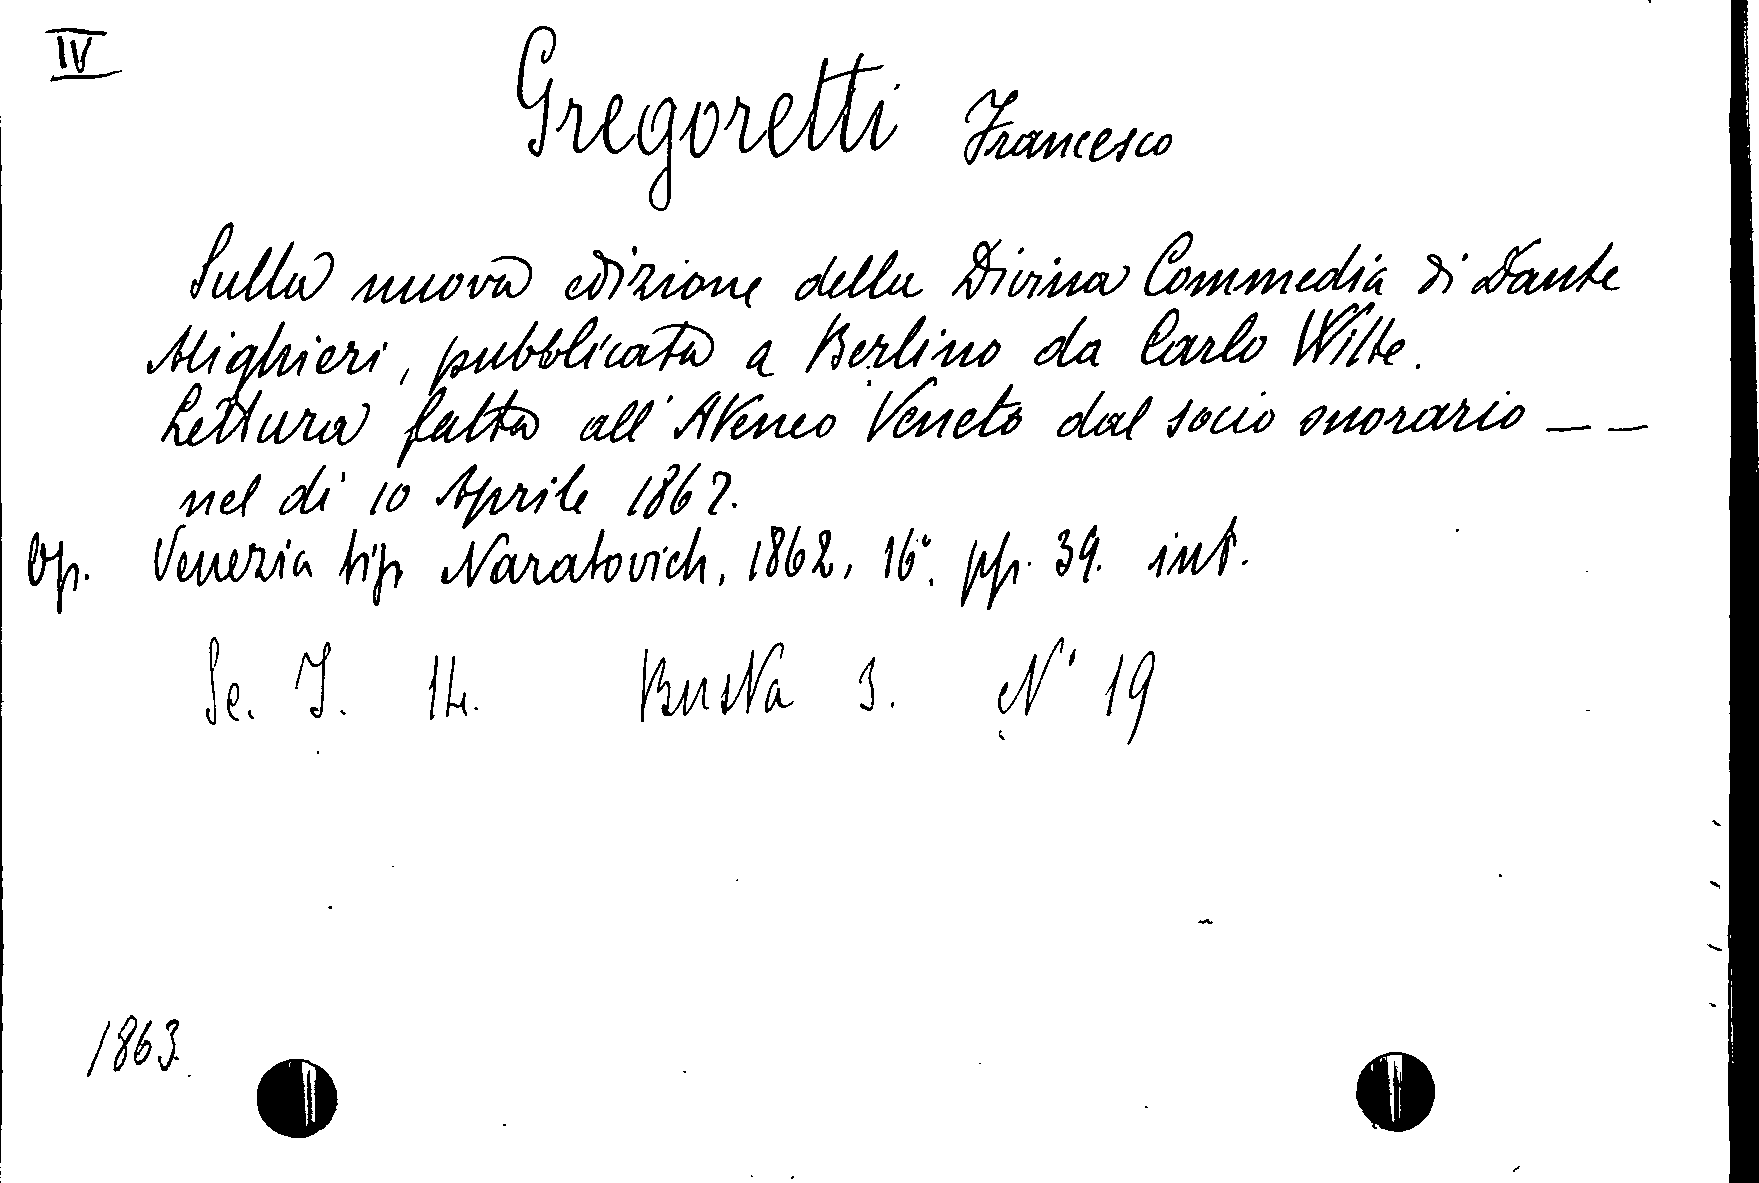 IV
Gregoretti Francesco
Sulla nuova edizione della Divina Commedia di Dante
Alighieri, pubblicata a Berlino da Carlo Witte.
Lettura fatta all'Ateneo Veneto dal socio onorario _ _
nel di 10 Aprile 1862.
Op. Venezia tip Naratovich, 1862, 16°. pp. 39. int.
Se. J. 14. Busta 3. N° 19
1863.